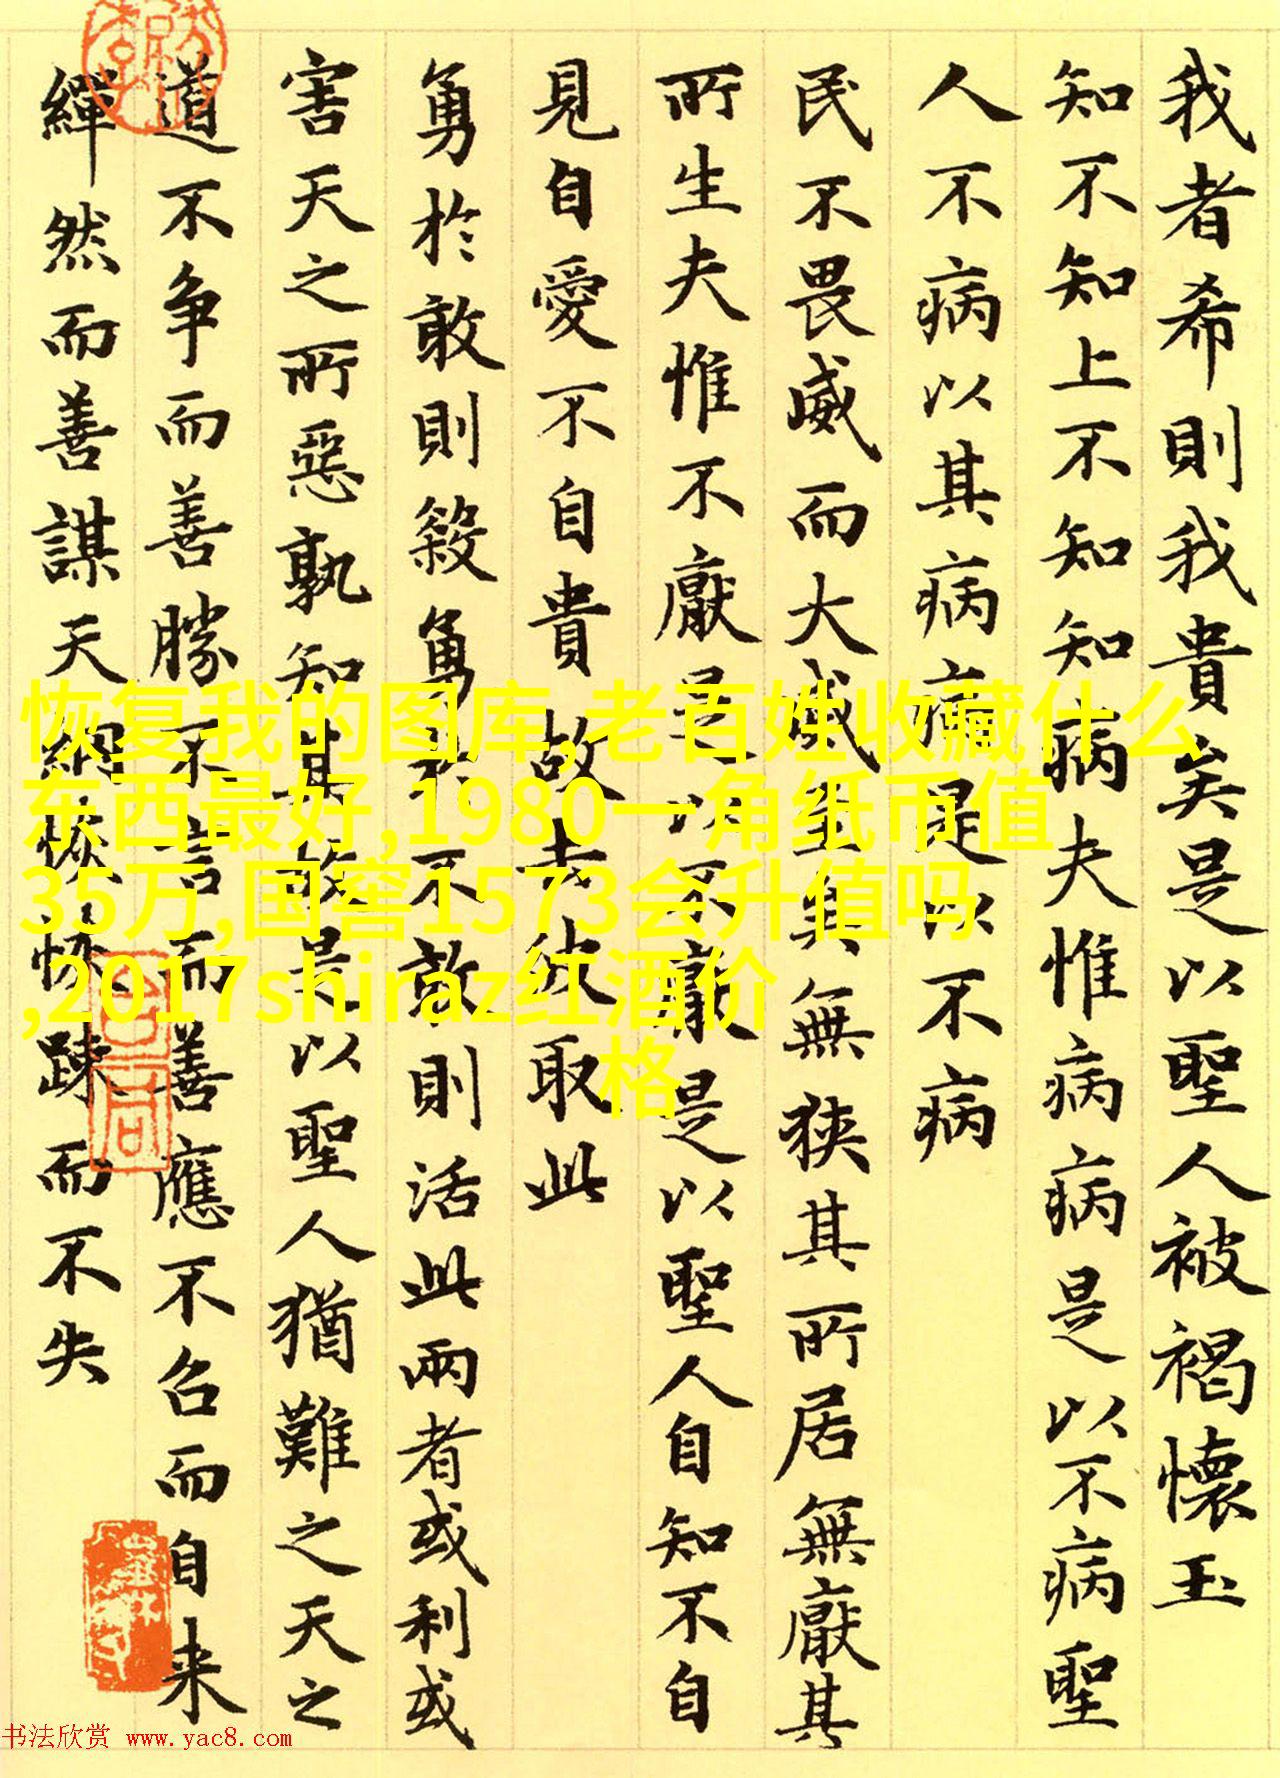 我者希則我貴矣是以聖人被褐懷玉
知不知上不知知病夫惟病病是以不病聖
人不病以其病病是以不病
民不畏威而大威至矣無狹其所居無厭其
所生夫惟不厭是以不厭是以聖人自知不自
見自愛不自貴故去彼取此
勇於敢則殺勇於不敢則活此兩者或利或
害天之所惡孰知其故是以聖人猶難之天之
道不争而善勝不言而善應不召而自来
繟然而善謀天網恢恢踈而不失
恢复我的图库,老百姓收藏什么
东西最好,1980一角纸币值
35万,国窖1573会升值吗
,2017shiraz红酒价
格
书法欣赏 www.yac8.com